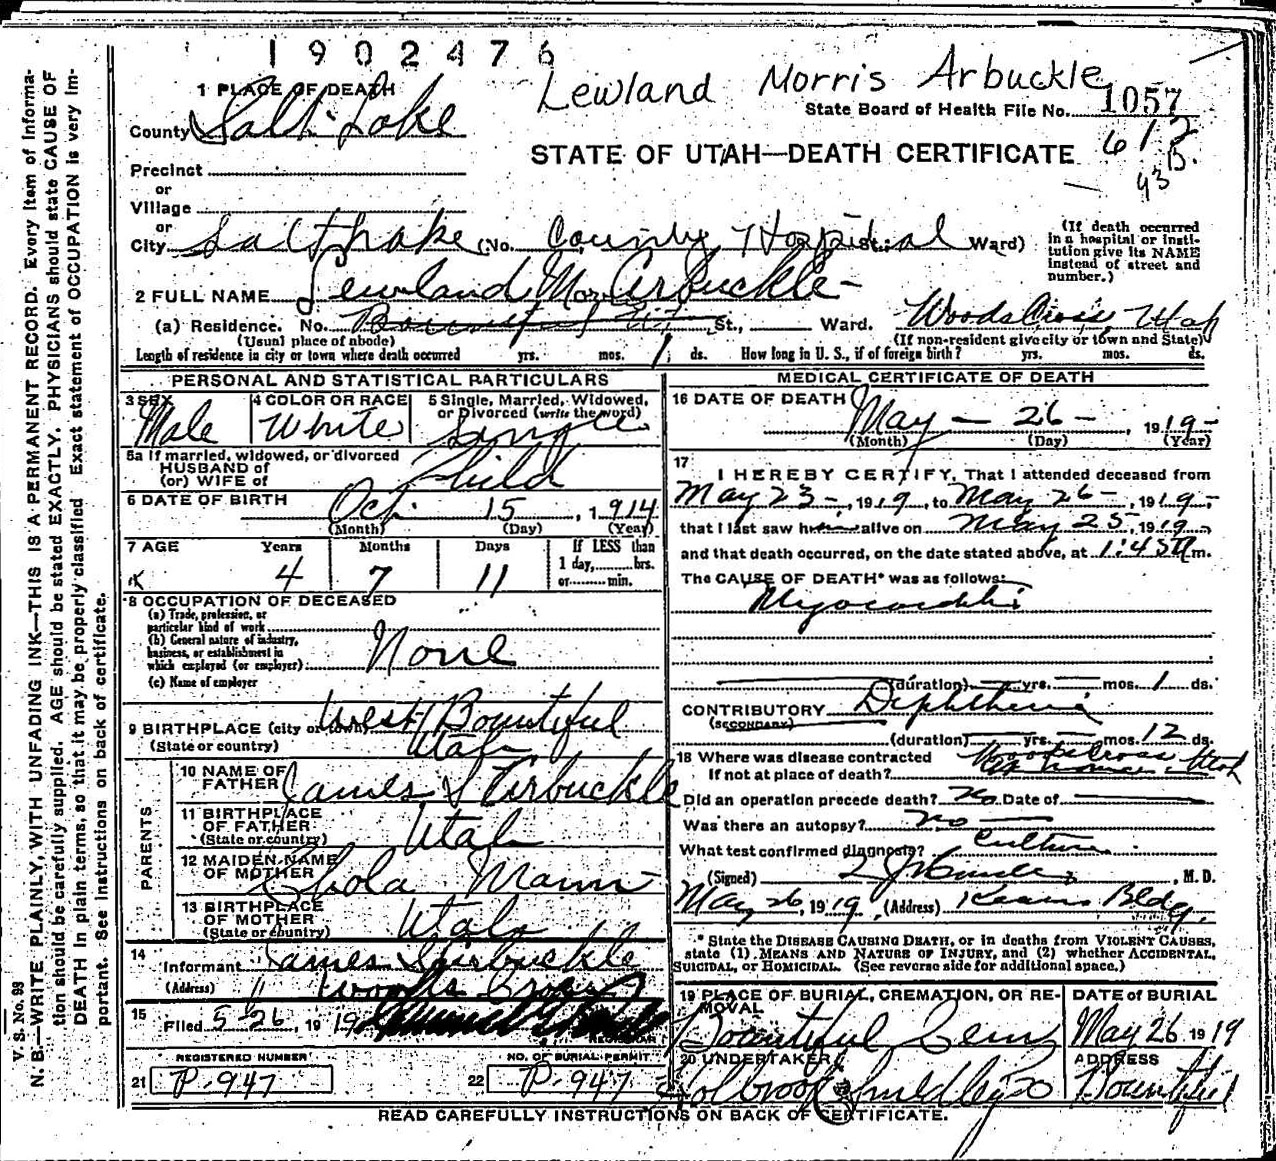 1902476
Lewland Morris Arbuckle
1 PLACE OF DEATH
State Board of Health File No. 1057
County Salt Lake
612
B.
93
STATE OF UTAH—DEATH CERTIFICATE
Precinct
or
Village
or
City Salt Lake (No. County Hospital St. Ward)
(If death occurred in a hospital or institution give its NAME instead of street and number.)
2 FULL NAME Lewland Mor Arbuckle
(a) Residence. No. Bountiful Ut St., Ward. Woods Cross, Utah
(Usual place of abode) (If non-resident give city or town and State)
Length of residence in city or town where death occurred yrs. mos. 1 ds. How long in U. S., if of foreign birth? yrs. mos. ds.
PERSONAL AND STATISTICAL PARTICULARS
3 SEX Male
4 COLOR OR RACE White
5 Single, Married, Widowed, or Divorced (write the word) Single
5a If married, widowed, or divorced
HUSBAND of
(or) WIFE of Child
6 DATE OF BIRTH Oct. 15, 1914
(Month) (Day) (Year)
7 AGE Years Months Days If LESS than 1 day, hrs. or min.
4 7 11
8 OCCUPATION OF DECEASED
(a) Trade, profession, or particular kind of work
(b) General nature of industry, business, or establishment in which employed (or employer) None
(c) Name of employer
9 BIRTHPLACE (city or town) West Bountiful
(State or country) Utah
PARENTS
10 NAME OF FATHER James S Arbuckle
11 BIRTHPLACE OF FATHER (State or country) Utah
12 MAIDEN NAME OF MOTHER Mann
13 BIRTHPLACE OF MOTHER (State or country) Utah
14 Informant James S Arbuckle
(Address) Woods Cross
15 Filed 5 26, 1919
REGISTRAR
REGISTERED NUMBER
21 P-947
NO. OF BURIAL PERMIT
22 P-947
MEDICAL CERTIFICATE OF DEATH
16 DATE OF DEATH May — 26 —, 1919-
(Month) (Day) (Year)
17 I HEREBY CERTIFY, That I attended deceased from
May 23 -, 1919, to May 26 -, 1919-,
that I last saw him alive on May 25, 1919-,
and that death occurred, on the date stated above, at 1:45 m.
The CAUSE OF DEATH* was as follows:
Myocarditis
(duration) yrs. mos. 1 ds.
CONTRIBUTORY Diphtheria
(SECONDARY)
(duration) yrs. mos. 12 ds.
18 Where was disease contracted Woods Cross
If not at place of death? Utah
Did an operation precede death? No Date of
Was there an autopsy? no
What test confirmed diagnosis? Culture
(Signed) , M. D.
May 26, 1919 (Address) Kearns Bldg.
* State the DISEASE CAUSING DEATH, or in deaths from VIOLENT CAUSES, state (1) MEANS AND NATURE OF INJURY, and (2) whether ACCIDENTAL, SUICIDAL, or HOMICIDAL. (See reverse side for additional space.)
19 PLACE OF BURIAL, CREMATION, OR REMOVAL Bountiful Cem
DATE OF BURIAL May 26 1919
20 UNDERTAKER Holbrook
ADDRESS Bountiful
READ CAREFULLY INSTRUCTIONS ON BACK OF CERTIFICATE.
V. S. No. 98
N. B.—WRITE PLAINLY, WITH UNFADING INK—THIS IS A PERMANENT RECORD. Every item of information should be carefully supplied. AGE should be stated EXACTLY. PHYSICIANS should state CAUSE OF DEATH in plain terms, so that it may be properly classified. Exact statement of OCCUPATION is very important. See instructions on back of certificate.